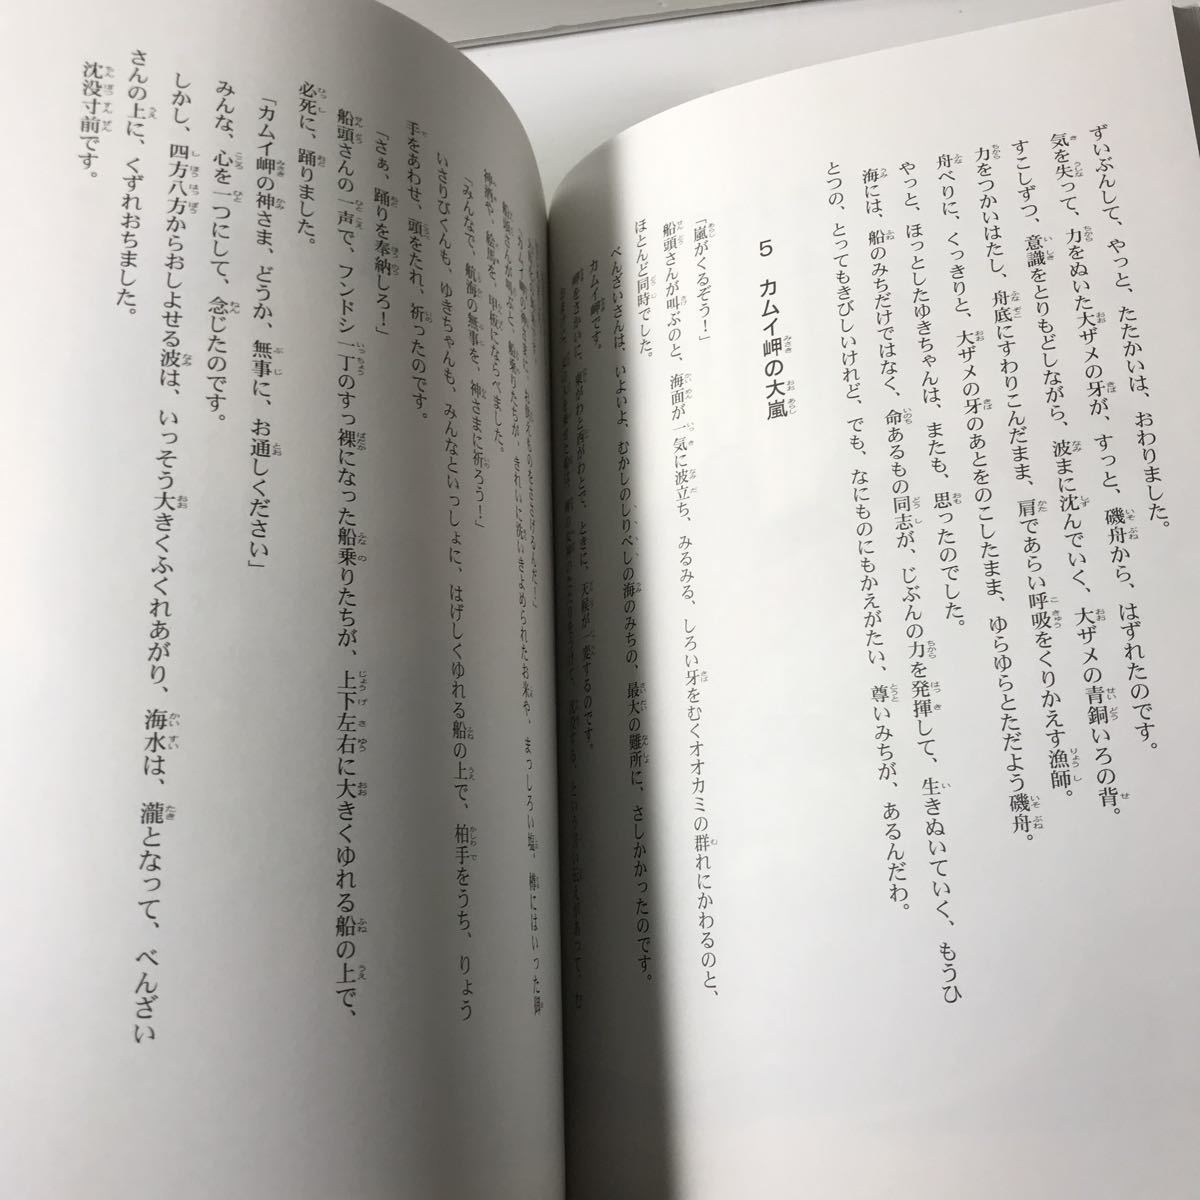 ずいぶんして、やっと、たたかいは、おわりました。
気を失って、力をぬいた大ザメの牙が、すっと、磯舟から、はずれたのです。
すこしずつ、意識をとりもどしながら、波まに沈んでいく、大ザメの青銅いろの背。
力をつかいはたし、舟底にすわりこんだまま、肩であらい呼吸をくりかえす漁師。
舟べりに、くっきりと、大ザメの牙のあとをのこしたまま、ゆらゆらとただよう磯舟。
やっと、ほっとしたゆきちゃんは、またも、思ったのでした。
海には、船のみちだけではなく、命あるもの同志が、じぶんの力を発揮して、生きぬいていく、もうひ
とつの、とってもきびしいけれど、でも、なにものにもかえがたい、尊いみちが、あるんだわ。
5 カムイ岬の大嵐
「嵐がくるぞう！」
船頭さんが叫ぶのと、海面が一気に波立ち、みるみる、しろい牙をむくオオカミの群れにかわるのと、
ほとんど同時でした。
べんざいさんは、いよいよ、むかしのしりべしの海のみちの、最大の難所に、さしかかったのです。
カムイ岬です。
岬をさかいに、東がわと西がわとで、ときに、天候が一変するのです。
船頭さんが叫ぶと、船乗りたちが、きれいに洗いきよめられたお米や、まっしろい塩、樽にはいった御
神酒や、絵馬を、甲板にならべました。
「みんなで、航海の無事を、神さまに祈ろう！」
いさりびくんも、ゆきちゃんも、みんなといっしょに、はげしくゆれる船の上で、柏手をうち、りょう
手をあわせ、頭をたれ、祈ったのです。
「さぁ、踊りを奉納しろ！」
船頭さんの一声で、フンドシ一丁のすっ裸になった船乗りたちが、上下左右に大きくゆれる船の上で、
必死に、踊りました。
「カムイ岬の神さま、どうか、無事に、お通しください」
みんな、心を一つにして、念じたのです。
しかし、四方八方からおしよせる波は、いっそう大きくふくれあがり、海水は、瀧となって、べんざい
さんの上に、くずれおちました。
沈没寸前です。